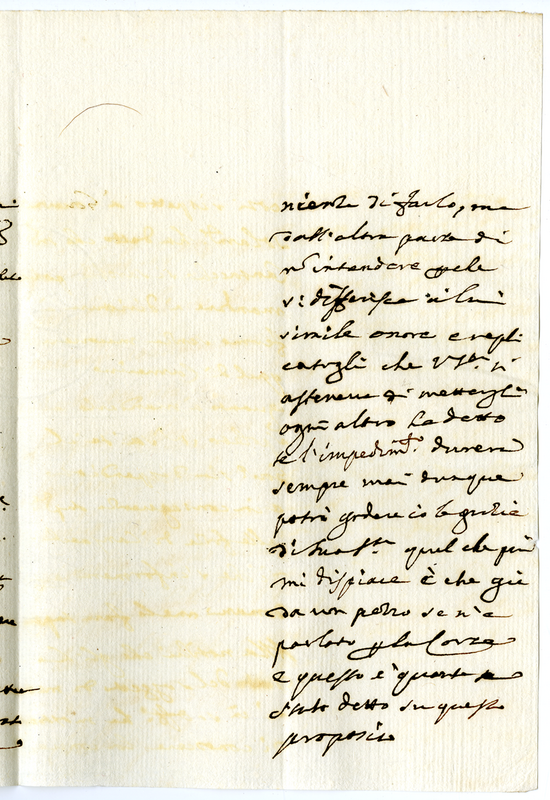 niente di farlo, ma
dall'altra parte di
n intendere
si differisca a lui
simile onore e repli
catogli che V.S. si
asteneva di mettergli
ogni altro ha detto
se l'impedim.to durerà
sempre mai dunque
potrò godere io le grazie
di Sua S.tà quel che più
mi dispiace è che già
da un pezzo se n'è
parlato p la Corte
e questo è quanto
stato detto su questo
proposito